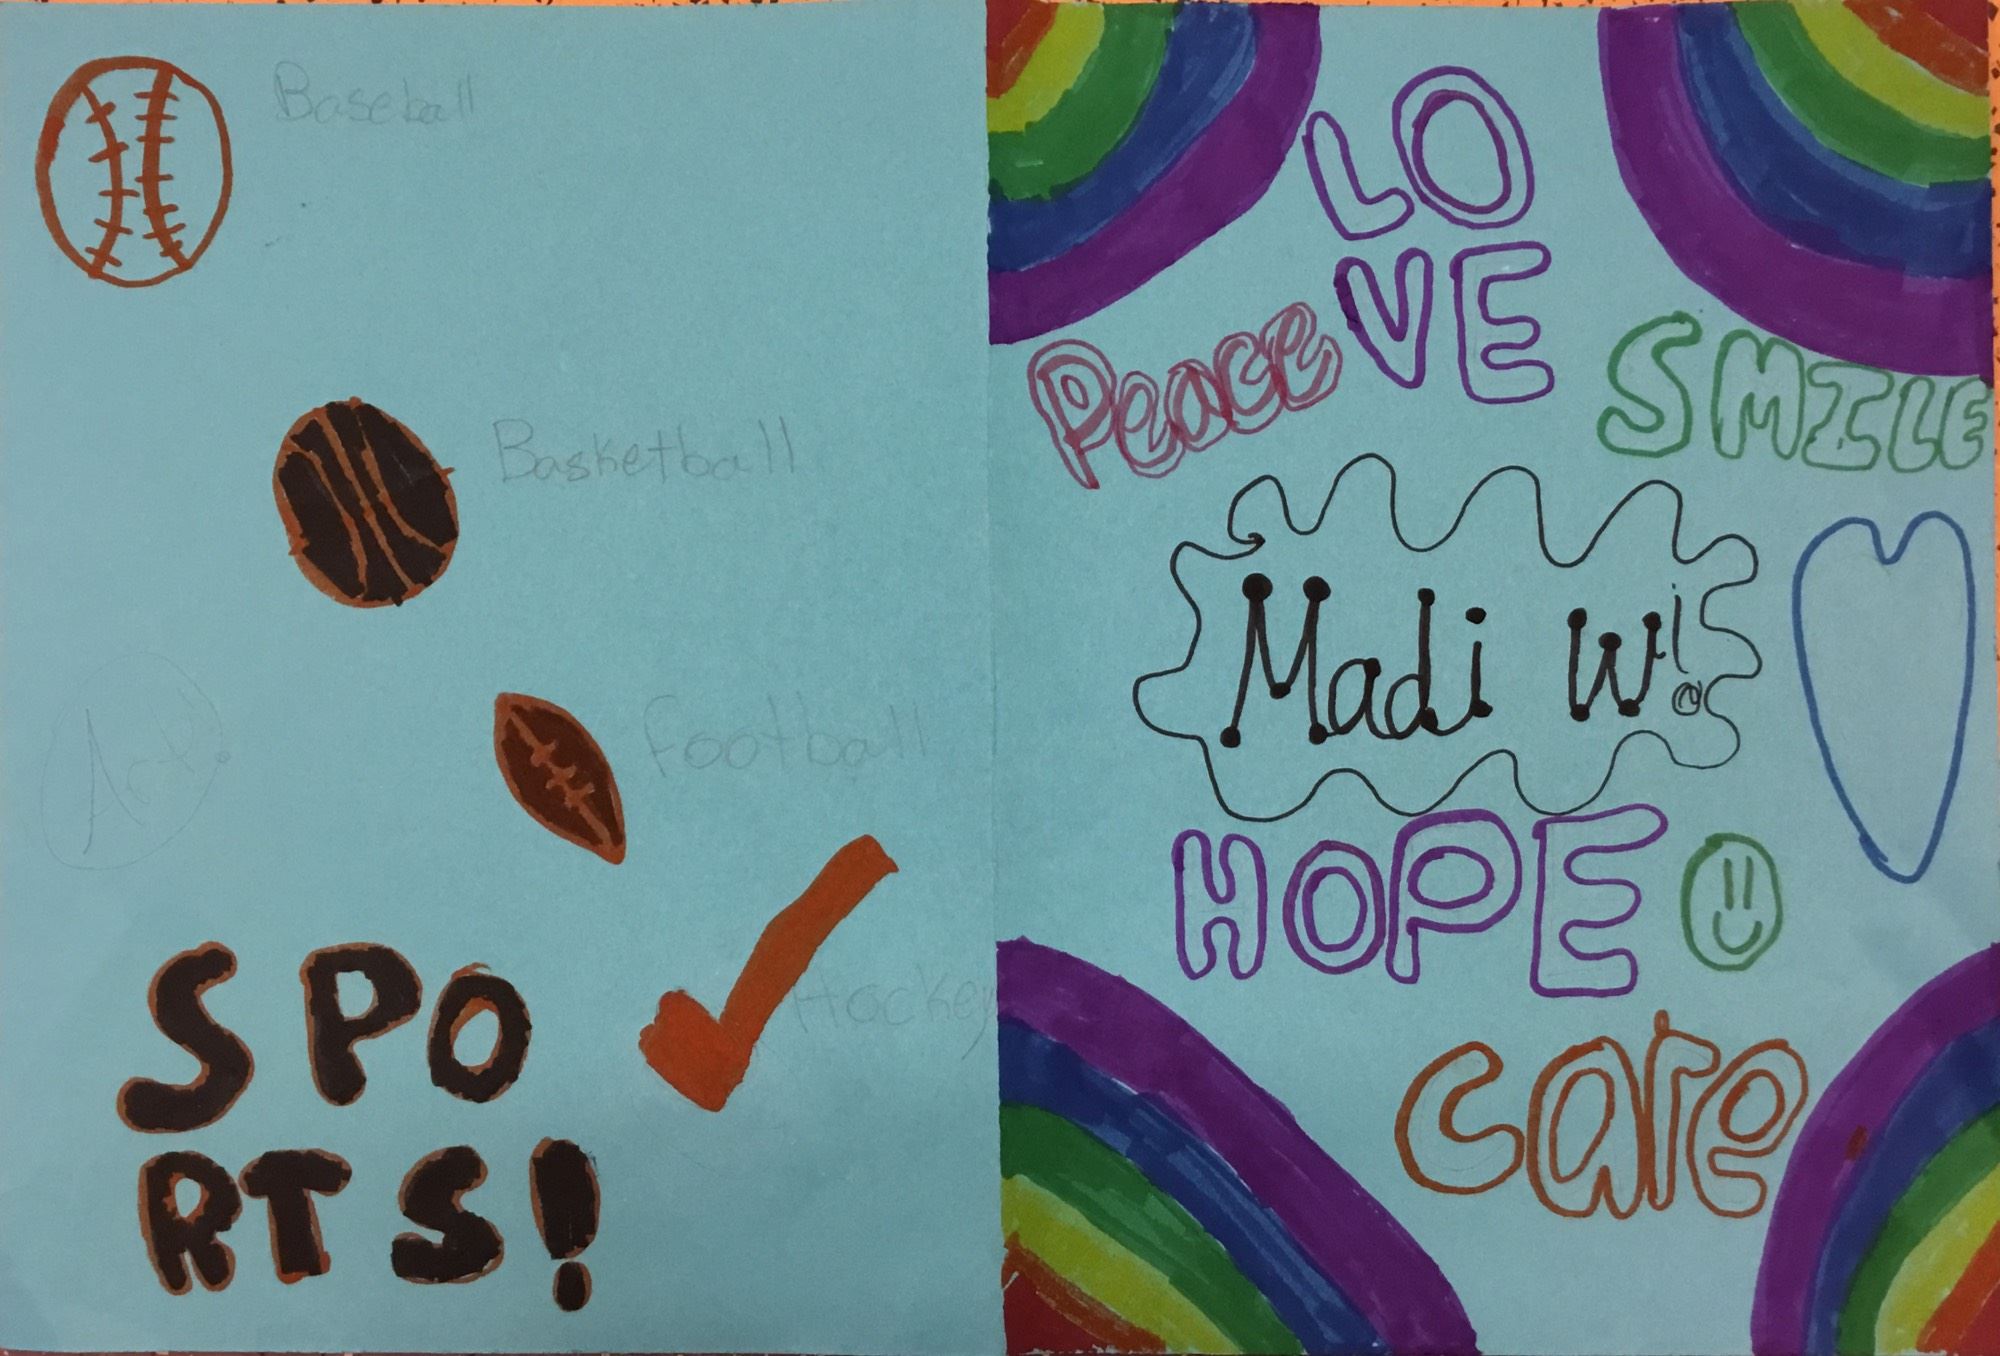 Baseball
Basketball
football
Art!
Hockey
SPO
RTS!
LO
VE
Peace
SMILE
Madi W!
HOPE
care